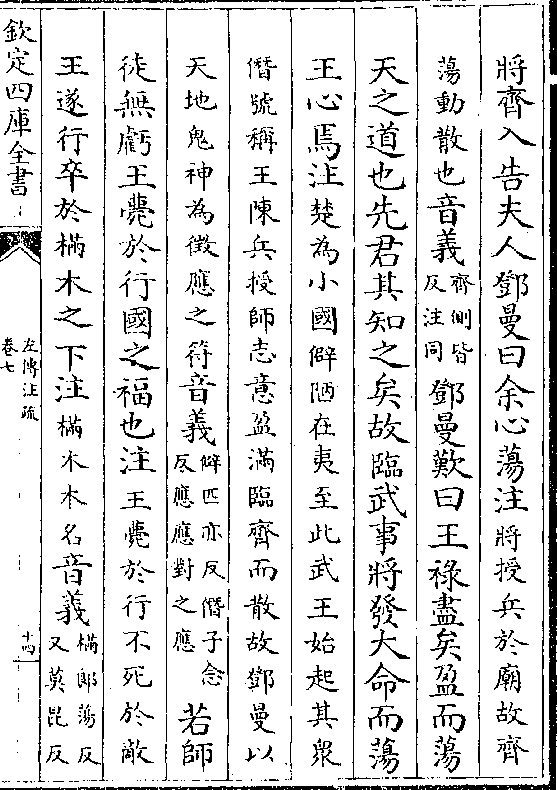 將齊入告夫人鄧曼曰余心蕩注將授兵於廟故齊
蕩動散也音義齊側皆反注同鄧曼歎曰王祿盡矣盈而蕩
天之道也先君其知之矣故臨武事將發大命而蕩
王心焉注楚為小國僻陋在夷至此武王始起其衆
僭號稱王陳兵授師志意盈滿臨齊而散故鄧曼以
天地鬼神為徵應之符音義僻匹亦反僭子念反應應對之應若師
徒無虧王薨於行國之福也注王薨於行不死於敵
王遂行卒於樠木之下注樠木木名音義樠郎蕩反又莫昆反
欽定四庫全書
左傳注疏
卷七
十四